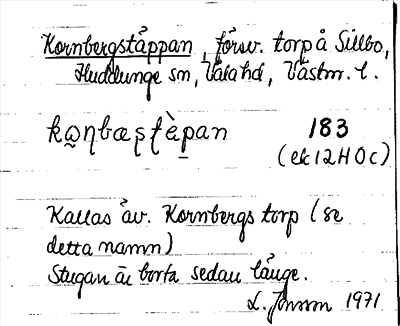 Kornbergstäppan, försv. torp å Sillbo,
Huddunge sn, Våla hd, Västm. l.
kω̰ηbæʂʈɛ̀pan 183
(ek 12 H 0 c)
Kallas äv. Kornbergs torp (se
detta namn)
Stugan är borta sedan länge.
L. Jonsson 1971